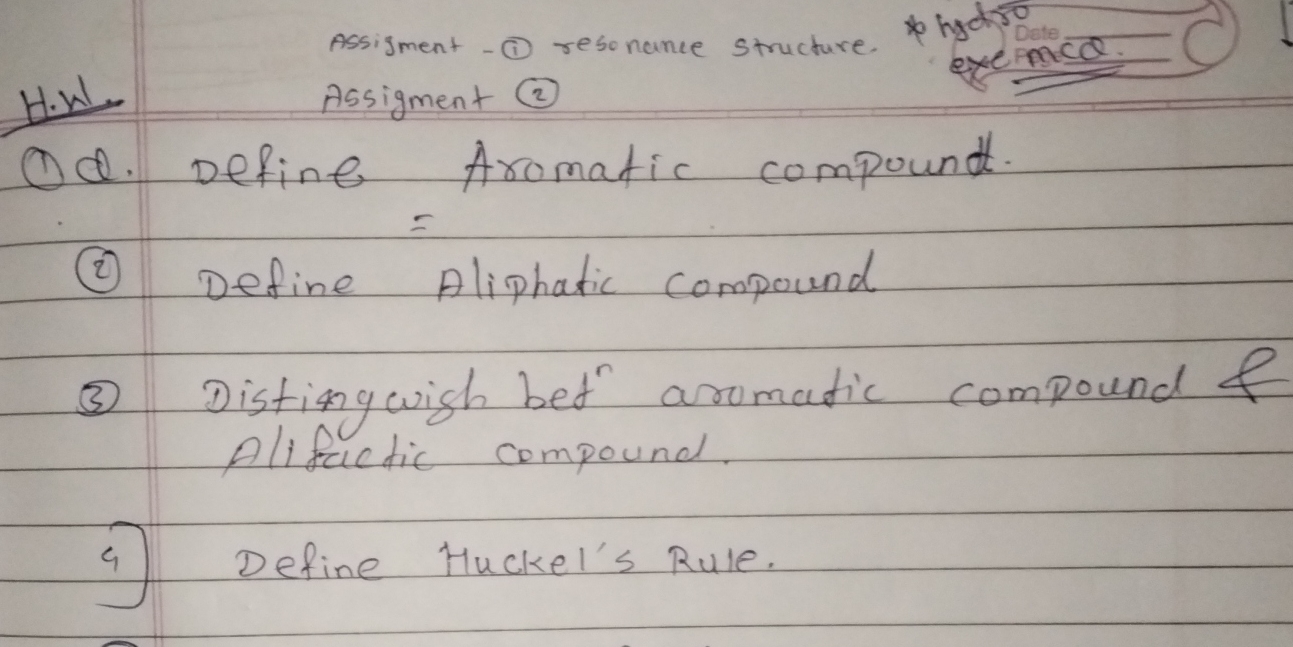 Assigment - ① resonance structure.
* hydro
Date
exe mcq.
H.W.
Assigment ②
① Q. Define Aromatic compound.
=
② Define Aliphatic compound
③ Distingwish betⁿ aromatic compound &
Alifactic compound.
4] Define Huckel's Rule.